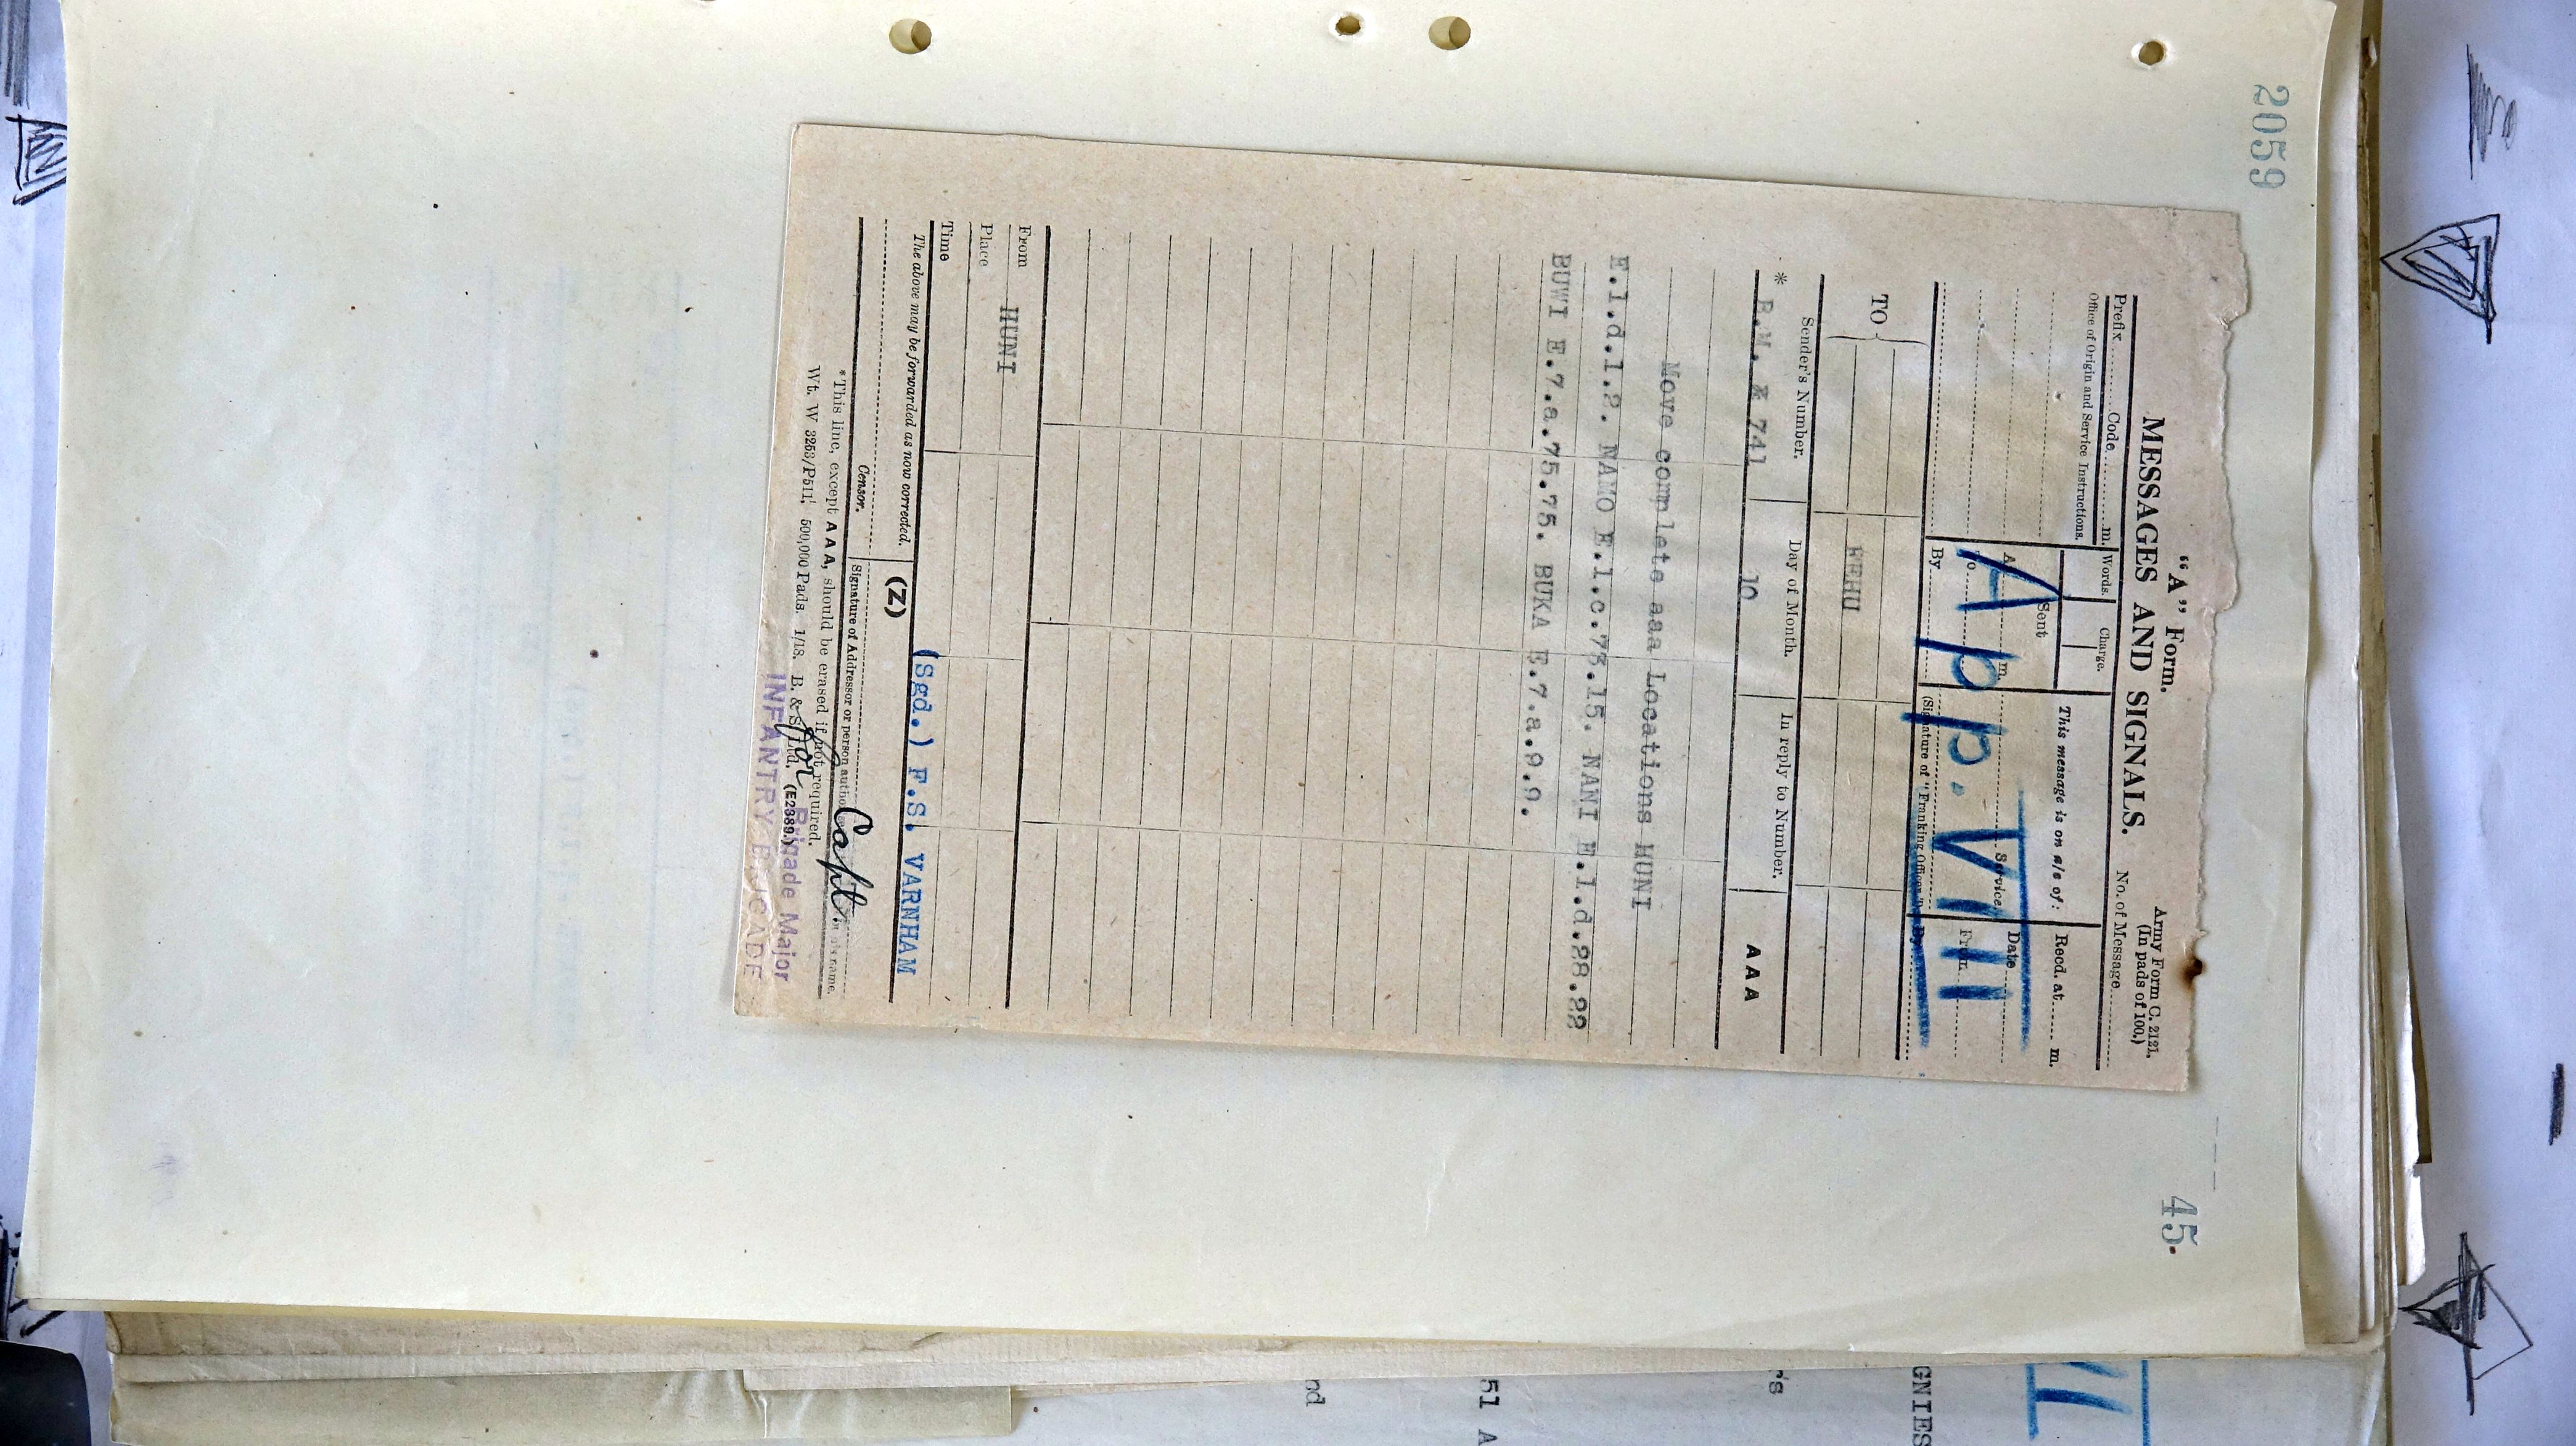 2059
45.
"A" Form.
Army Form C. 2121.
(In pads of 100.)
MESSAGES AND SIGNALS.
No. of Message
Prefix Code m.
Words.
Charge.
This message is on a/c of:
Recd. at m.
Office of Origin and Service Instructions.
Sent
Date
At m.
Service.
From
To
By
(Signature of "Franking Officer.")
By
App. VIII
TO
HEHU
Sender's Number.
Day of Month.
In reply to Number.
AAA
* B.M. 741
10
Move complete aaa Locations HUNI
E.1.d.1.2. NAMO E.1.c.73.15. NANI E.1.d.28.22
BUWI E.7.a.75.75. BUKA E.7.a.9.9.
From HUNI
Place
Time
The above may be forwarded as now corrected.
(Z)
(Sgd.) F.S. VARNHAM
Censor.
Signature of Addressor or person authorised in his name.
Capt.
*This line, except AAA, should be erased if not required.
Wt. W 3253/P511. 500,000 Pads. 1/18. B. & S. Ltd. (E2389.)
for Brigade Major
INFANTRY BRIGADE
GNIES
's
51 A
nd